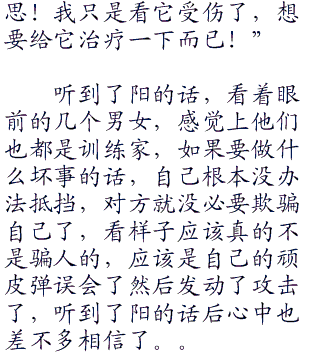 思！我只是看它受伤了，想
要给它治疗一下而已！”
听到了阳的话，看着眼
前的几个男女，感觉上他们
也都是训练家，如果要做什
么坏事的话，自己根本没办
法抵挡，对方就没必要欺骗
自己了，看样子应该真的不
是骗人的，应该是自己的顽
皮弹误会了然后发动了攻击
了，听到了阳的话后心中也
差不多相信了。。